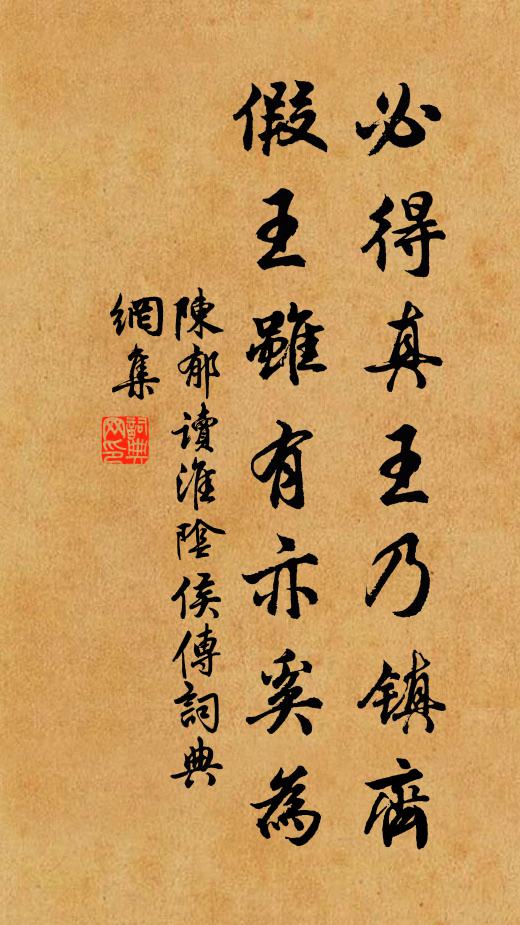 必得真王乃镇齊
假王雖有亦奚為
陳郁讀淮陰侯傳詞典
網集
詞典
网印